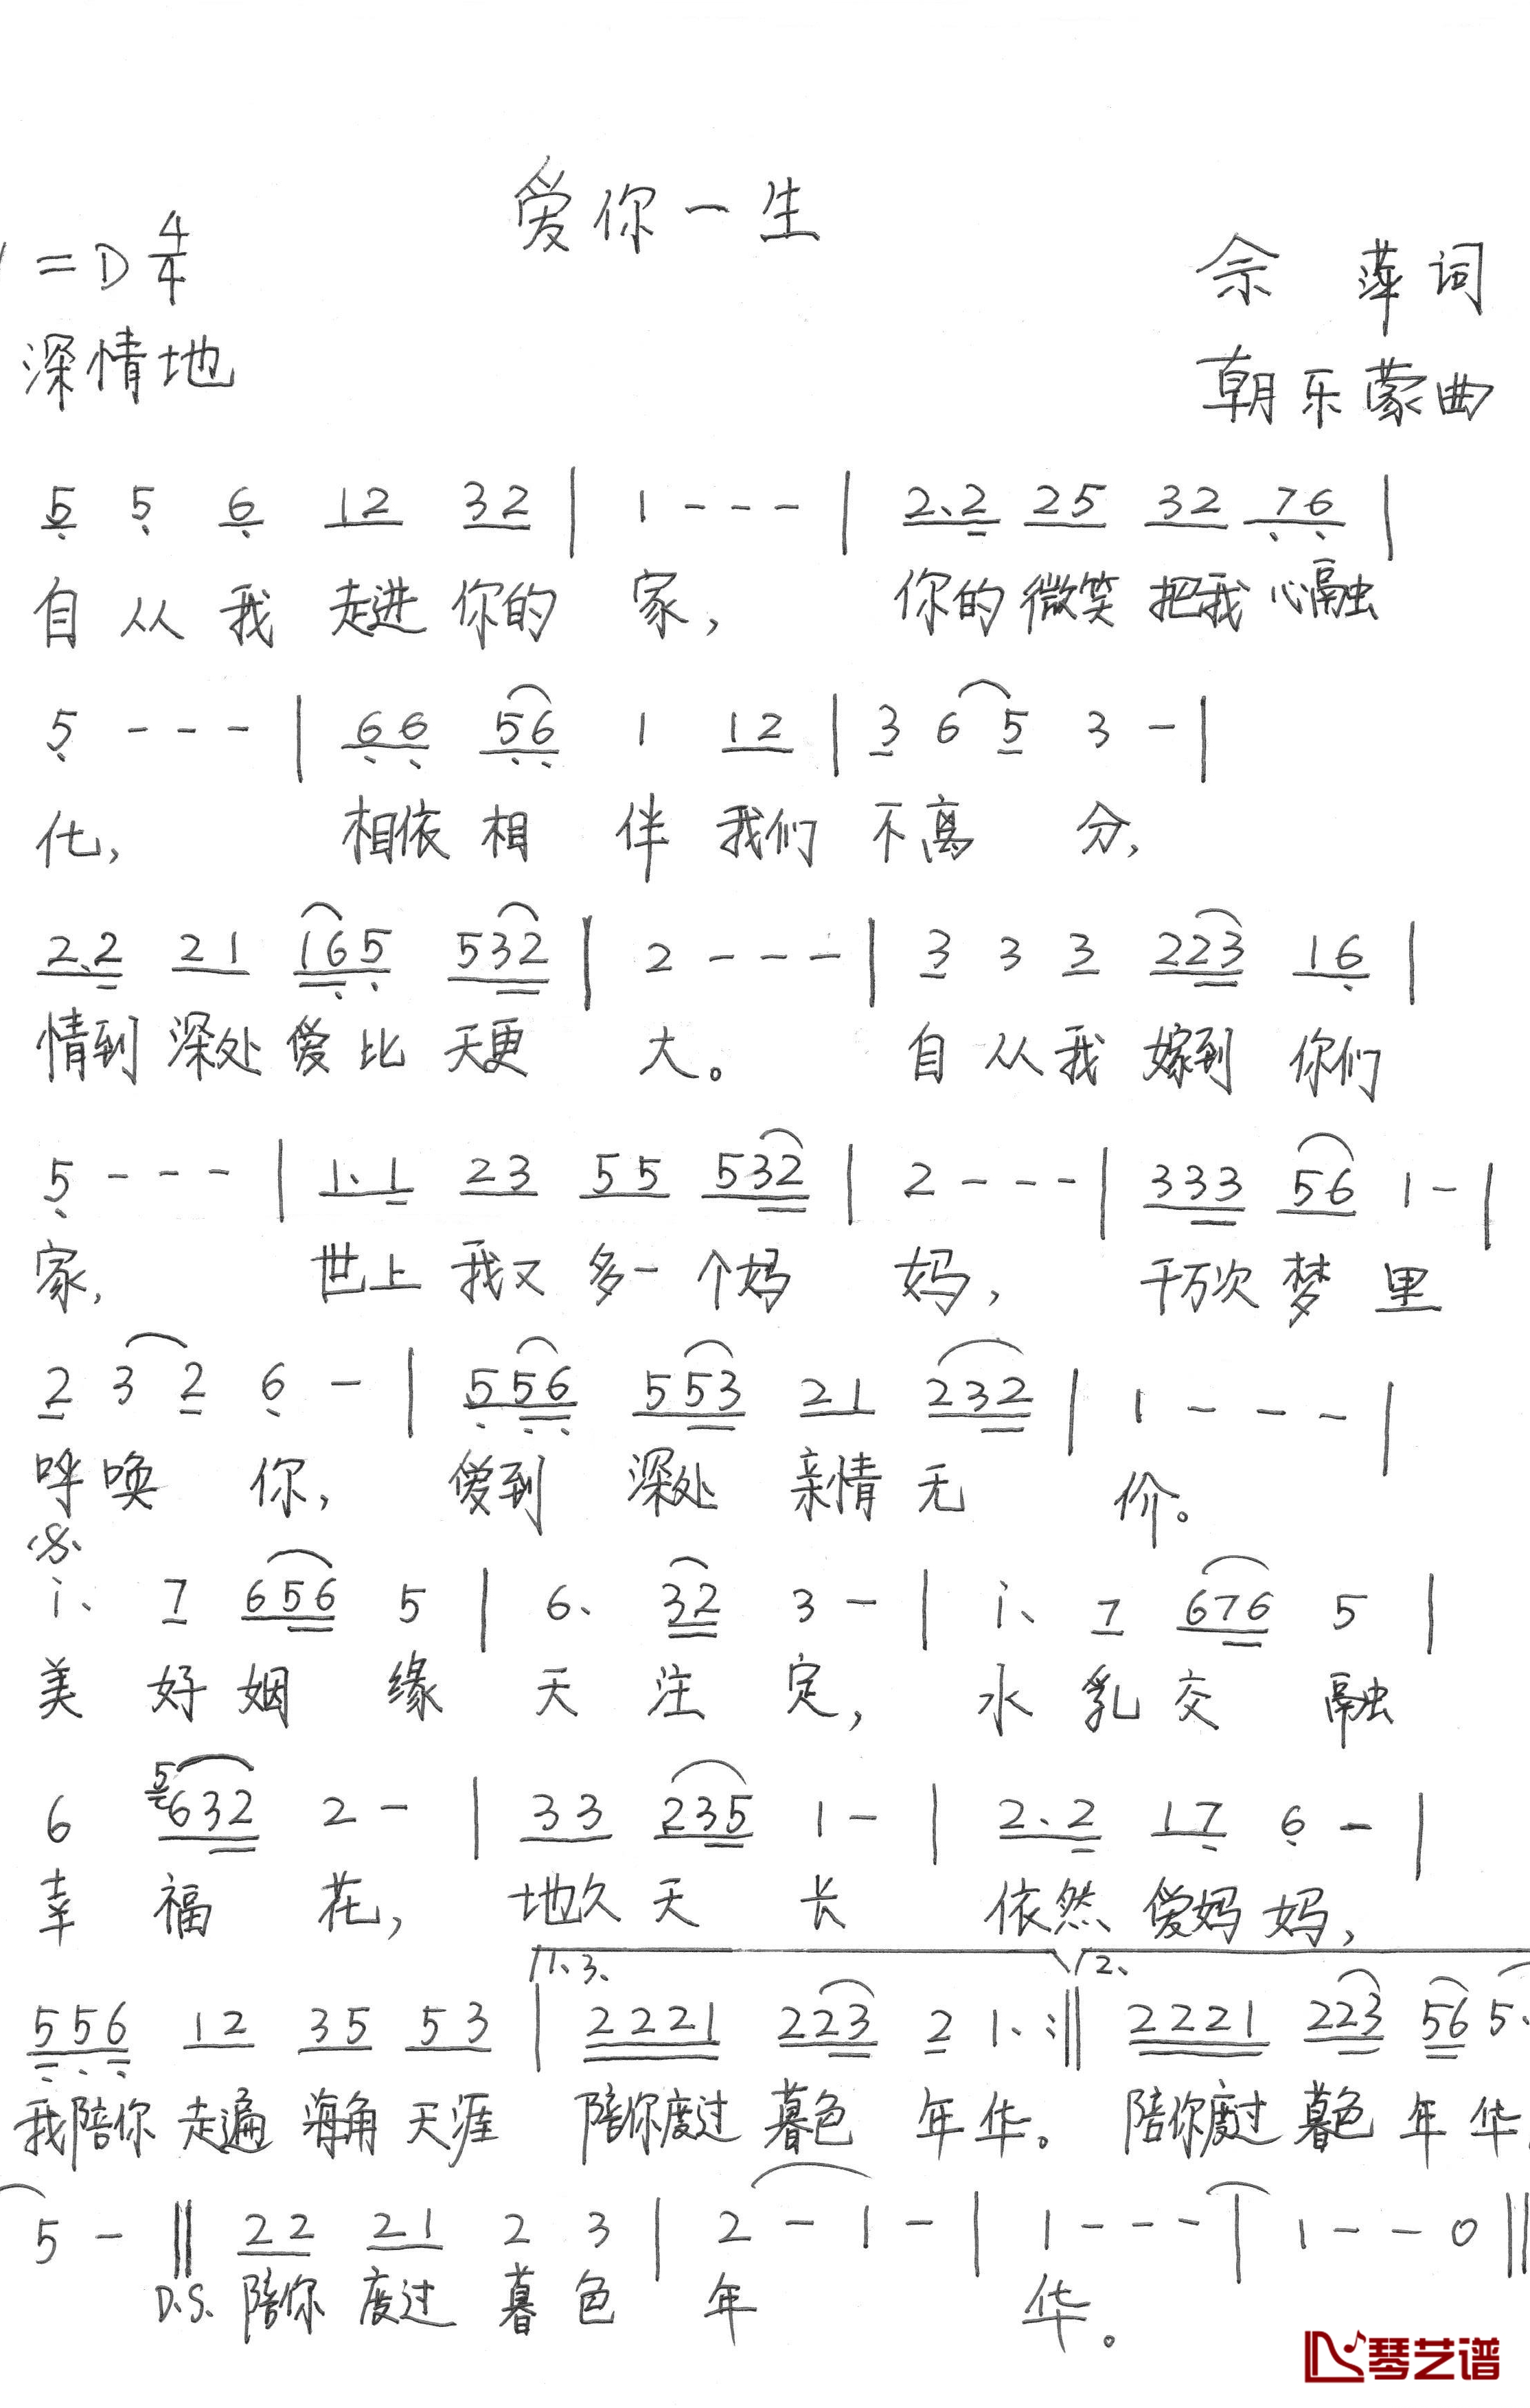 爱你一生
1=D 4/4
佘 萍词
深情地
朝乐蒙曲
5 5 6 12 32 | 1 - - - | 2.2 25 32 76 |
自 从 我 走进 你的 家, 你的 微笑 把我 心融
5 - - - | 66 56 1 12 | 3 6 5 3 - |
化, 相依 相 伴 我们 不 离 分,
2.2 21 165 532 | 2 - - - | 3 3 3 223 16 |
情到 深处 爱比 天更 大。 自 从 我 嫁到 你们
5 - - - | 1.1 23 55 532 | 2 - - - | 333 56 1 - |
家, 世上 我又 多一 个妈 妈, 千万次 梦 里
2 3 2 6 - | 556 553 21 232 | 1 - - - |
呼 唤 你, 爱到 深处 亲情 无 价。
i. 7 656 5 | 6. 32 3 - | i. 7 676 5 |
美 好 姻 缘 天 注 定, 水 乳 交 融
6 5 632 2 - | 33 235 1 - | 2.2 17 6 - |
幸 福 花, 地久 天 长 依然 爱妈 妈,
1. 3. 2.
556 12 35 53 | 2221 223 2 1. :|| 2221 223 56 5.
我陪你 走遍 海角 天涯 陪你度过 暮色 年 华。 陪你度过 暮色 年 华
5 - || 22 21 2 3 | 2 - 1 - | 1 - - - | 1 - - 0 ||
D.S. 陪你 度过 暮 色 年 华。
琴艺谱